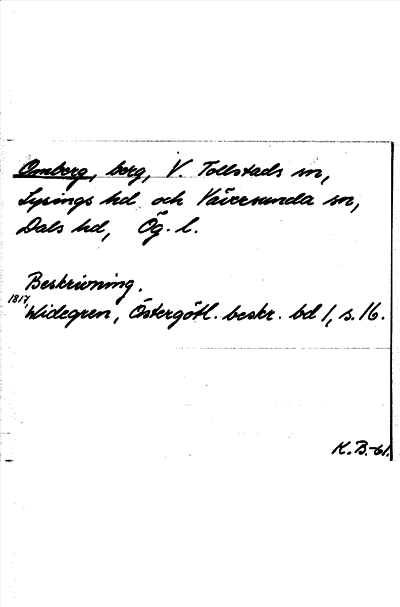 Omberg, berg, V. Tollstads sn,
Lysings hd och Väversunda sn,
Dals hd, Ög. l.
Beskrivning.
1817, Widegren, Östergötl. beskr. bd 1, s. 16.
K.B.-61.